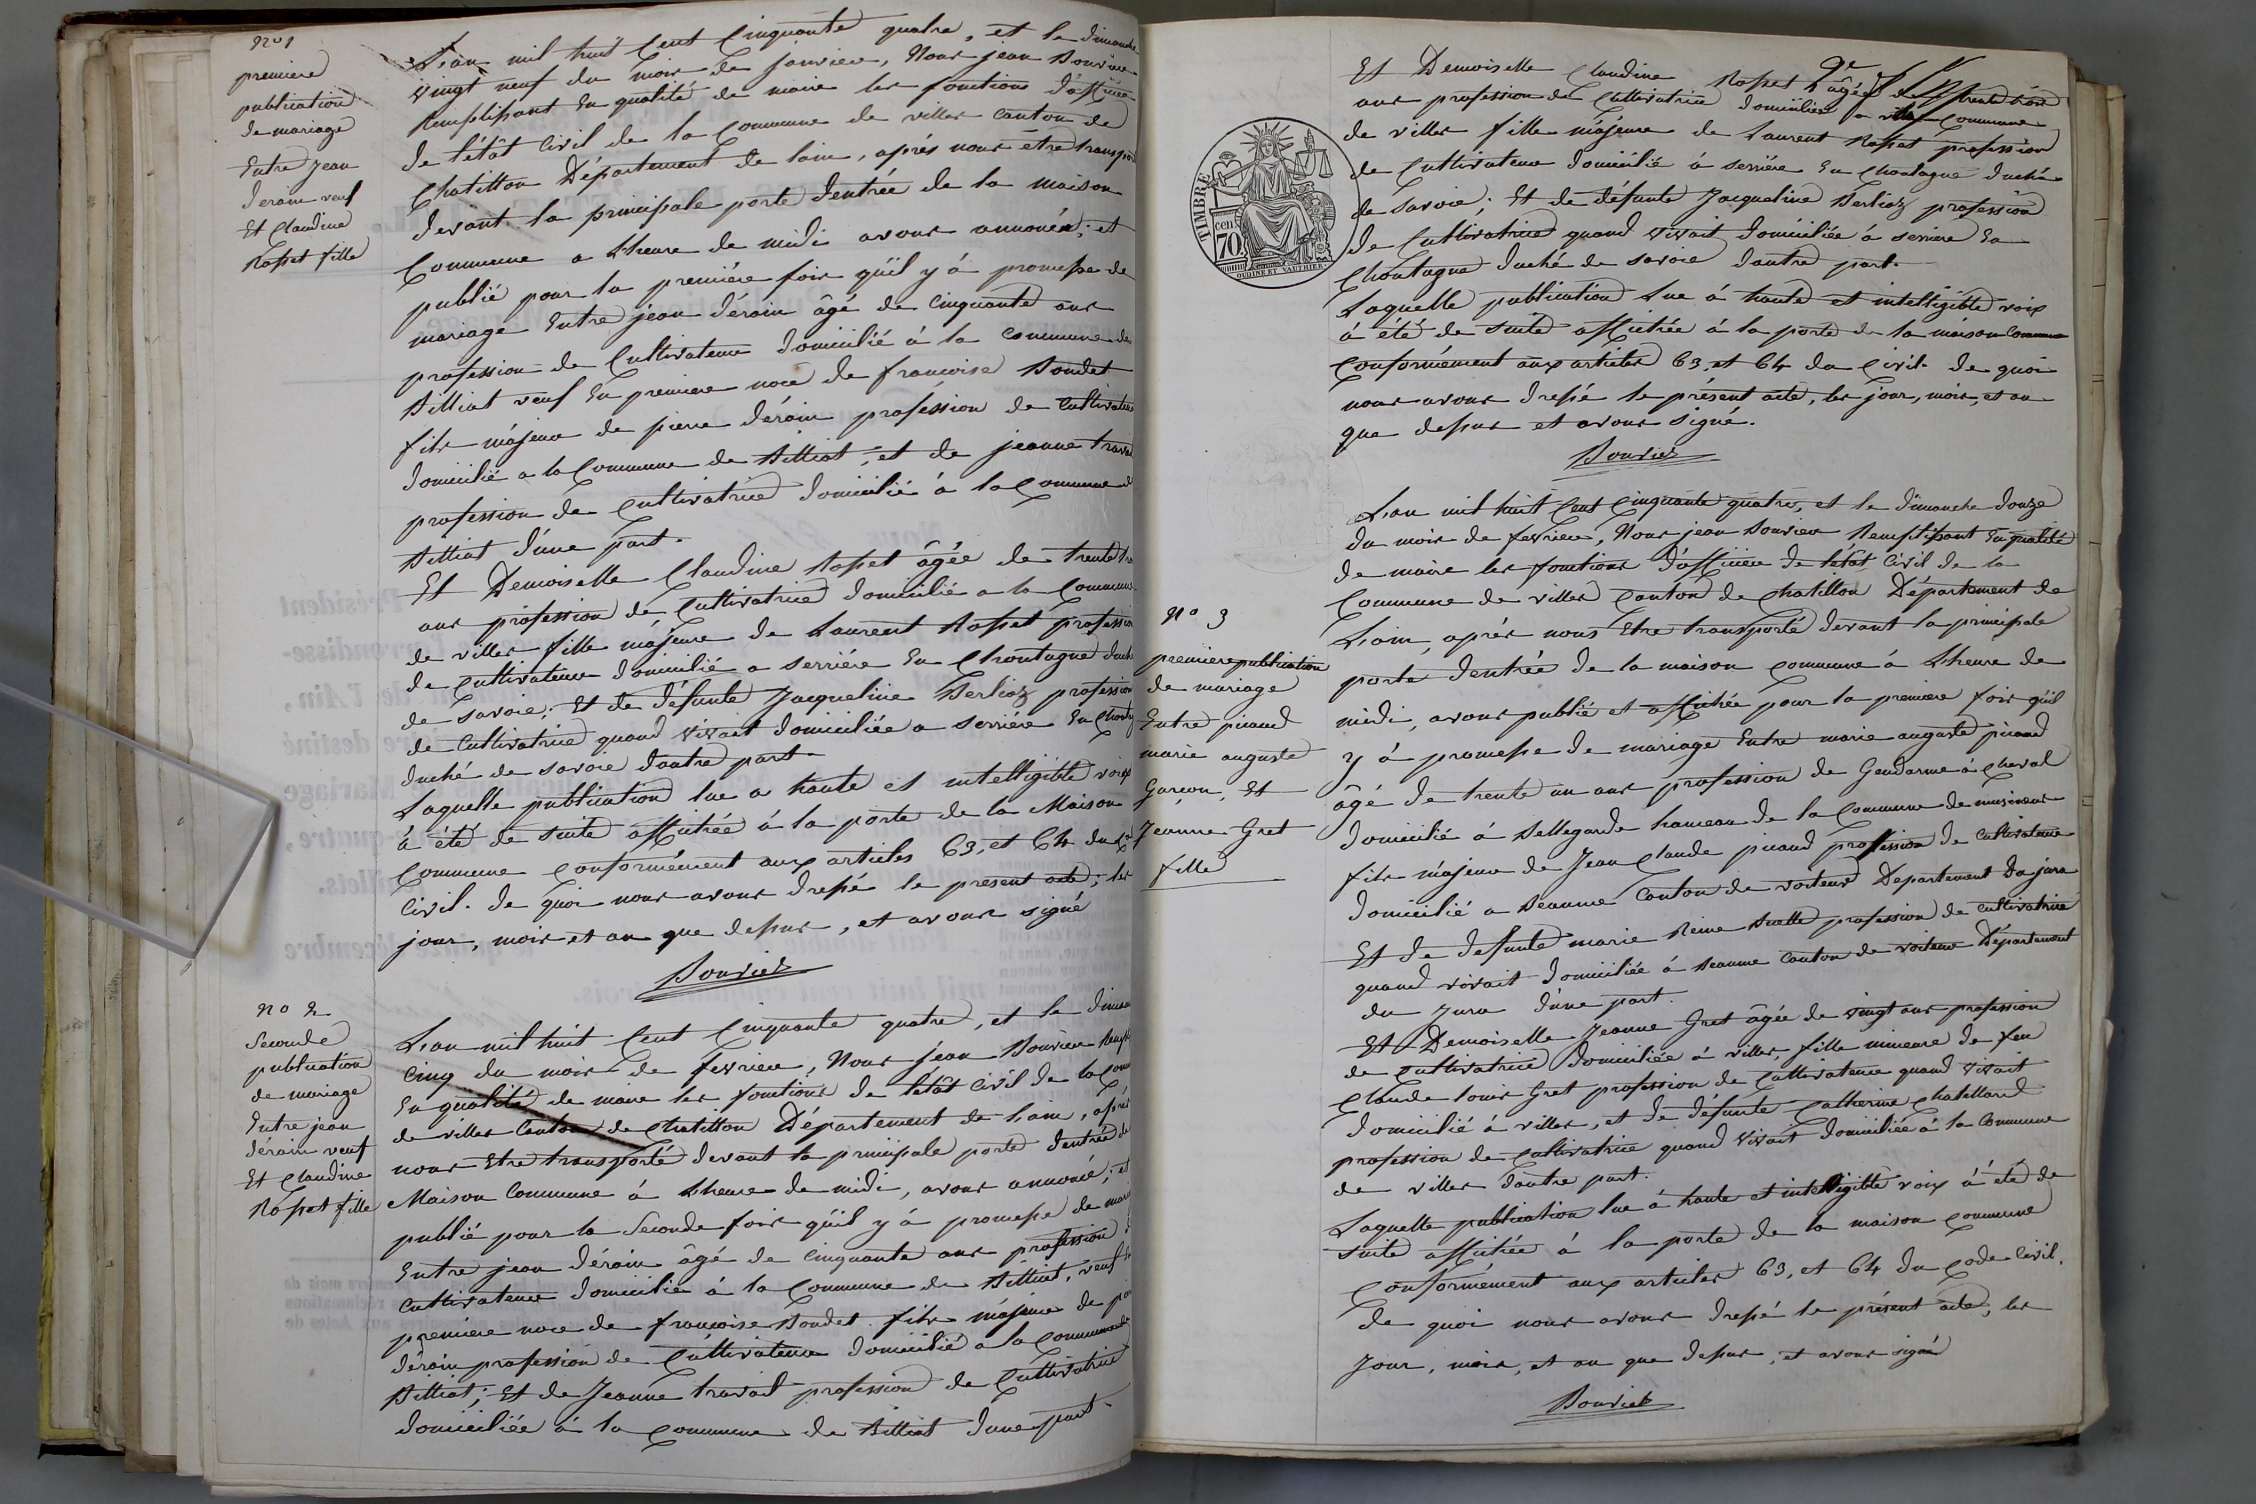 no 1
première
publication
de mariage
Entre jean
derain veuf
Et Claudine
Rosset fille
L'an mil huit Cent Cinquante quatre, et le dimanche
vingt neuf du mois de janvier, Nous jean Bouvier
Remplissant En qualité de maire les fonctions d'officier
de l'étât Civil de la Commune de villes canton de
Chatillon Département de lain, après nous être transporté
devant la principale porte d'entrée de la maison
Commune a L'heure de midi avons annoncé; et
publié pour la première fois qu'il y à promesse de
mariage Entre jean dérain âgé de Cinquante ans
profession de Cultivateur domicilié à la commune de
Billiat veuf En première noce de francoise Bondet
fils majeur de pierre dérain profession de Cultivateur
domicilié a la Commune de Billiat; et de jeanne travail
profession de Cultivatrice domicilié à la Commune de
Billiat d'une part.
Et Demoiselle Claudine Rosset âgée de trente
ans profession de Cultivatrice domicilié a la Commune
de villes fille majeure de Laurent Rosset profession
de Cultivateur domicilié a serrière En Chautagne duché
de savoie; Et de défunte Jacqueline Berlioz profession
de Cultivatrice quand vivait domiciliée a serrière En
duché de savoie dautre part.
Laquelle publication lue a haute et intelligible voix
à été de suite affichée à la porte de la Maison
Commune conformément aux articles 63, et 64 du
Civil. de quoi nous avons dressé le present acte; les
jour, mois et an que dessus, et avons signé
Bouvier
no 2
Seconde
publication
de mariage
Entre jean
dérain veuf
Et Claudine
Rosset fille
L'an mil huit Cent Cinquante quatre, et le
cinq du mois de fevrier, Nous jean Bouvier
En qualité de maire les fonctions de létât Civil de la
de villes Canton de Chatillon Département de Lain, après
nous Etre transporté devant la principale porte dentrée de
Maison Commune à L'heure de midi, avons annoncé; et
publié pour la Seconde fois qu'il y à promesse de
Entre jean dérain âgé de cinquante ans profession
Cultivateur domicilié à la Commune de Billiat, veuf
première noce de francoise Bondet. fils majeur de
dérain profession de Cultivateur domicilié a la Commune de
Billiat; Et de Jeanne travail profession de Cultivatrice
domiciliée à la Commune de Billiat d'une part.
TIMBRE
cen
70.
OUDINÉ ET VAUTHIER
Et Demoiselle Claudine Rosset âgée de trente
ans profession de Cultivatrice domiciliée a la Commune
de villes fille majeure de Laurent Rosset profession
de Cultivateur domicilié à serrière En Chautagne duché
de savoie; Et de défunte Jacqueline Berlioz profession
de Cultivatrice quand vivait domiciliée à serrière En
Chautagne duché de savoie dautre part.
Laquelle publication Lue à haute et intelligible voix
à été de suite affichée à la porte de la maison Commune
Conformément aux articles 63, et 64 du Civil. de quoi
nous avons dressé le présent acte, les jour, mois, et an
que dessus et avons signé.
Bouvier
no 3
première publication
de mariage
Entre picaud
marie auguste
Garçon, Et
Jeanne Gret
fille
L'an mil huit Cent Cinquante quatre, et le dimanche douze
du mois de fevrier, Nous jean Bouvier Remplissant En qualité
de maire les fonctions d'officier de l'étât Civil de la
Commune de villes Canton de Chatillon Département de
L'ain, après nous Etre transporté devant la principale
porte d'entrée de la maison commune à L'heure de
midi, avons publié et affichée pour la première fois qu'il
y à promesse de mariage Entre marie auguste picaud
âgé de trente un ans profession de Gendarme à Cheval
domicilié à Bellegarde hameau de la Commune de musinens
fils majeur de Jean Claude picaud profession de Cultivateur
domicilié a Beaume Canton de voiteur Département Du jura
Et de defunte marie Reine profession de cultivatrice
quand vivait domiciliée à Beaume canton de voiteur Département
du Jura d'une part.
Et Demoiselle Jeanne Gret âgée de vingt ans profession
de Cultivatrice domiciliée à villes, fille mineure de feu
Claude louis Gret profession de Cultivateur quand vivait
domicilié à villes, et de défunte Catherine Chatillard
profession de Cultivatrice quand vivait domiciliée à la Commune
de villes dautre part.
Laquelle publication lue à haute et intelligible voix à été de
suite affichée à la porte de la maison Commune
conformément aux articles 63, et 64 du Code Civil.
de quoi nous avons dressé le présent acte; les
Jour, mois, et an que dessus, et avons signé
Bouvier